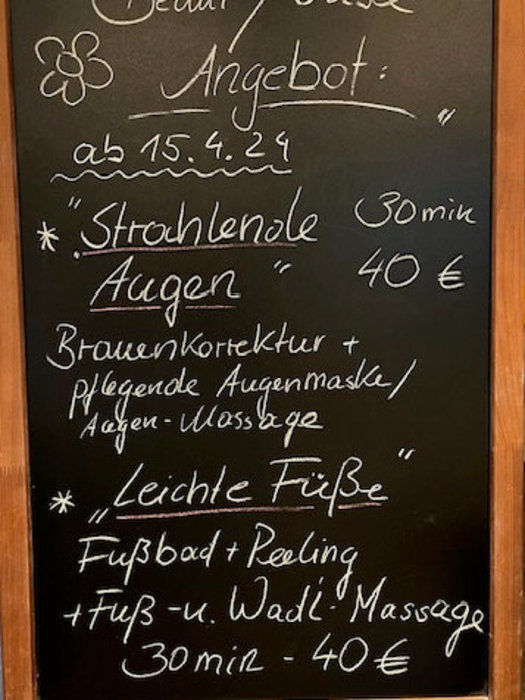 Beauty
Angebot:
ab 15.4.24
* "Strahlende 30min
Augen" 40 €
Brauenkorrektur +
pflegende Augenmaske/
Augen-Massage
* „Leichte Füße"
Fußbad + Peeling
+ Fuß-u. Wadl-Massage
30min - 40€